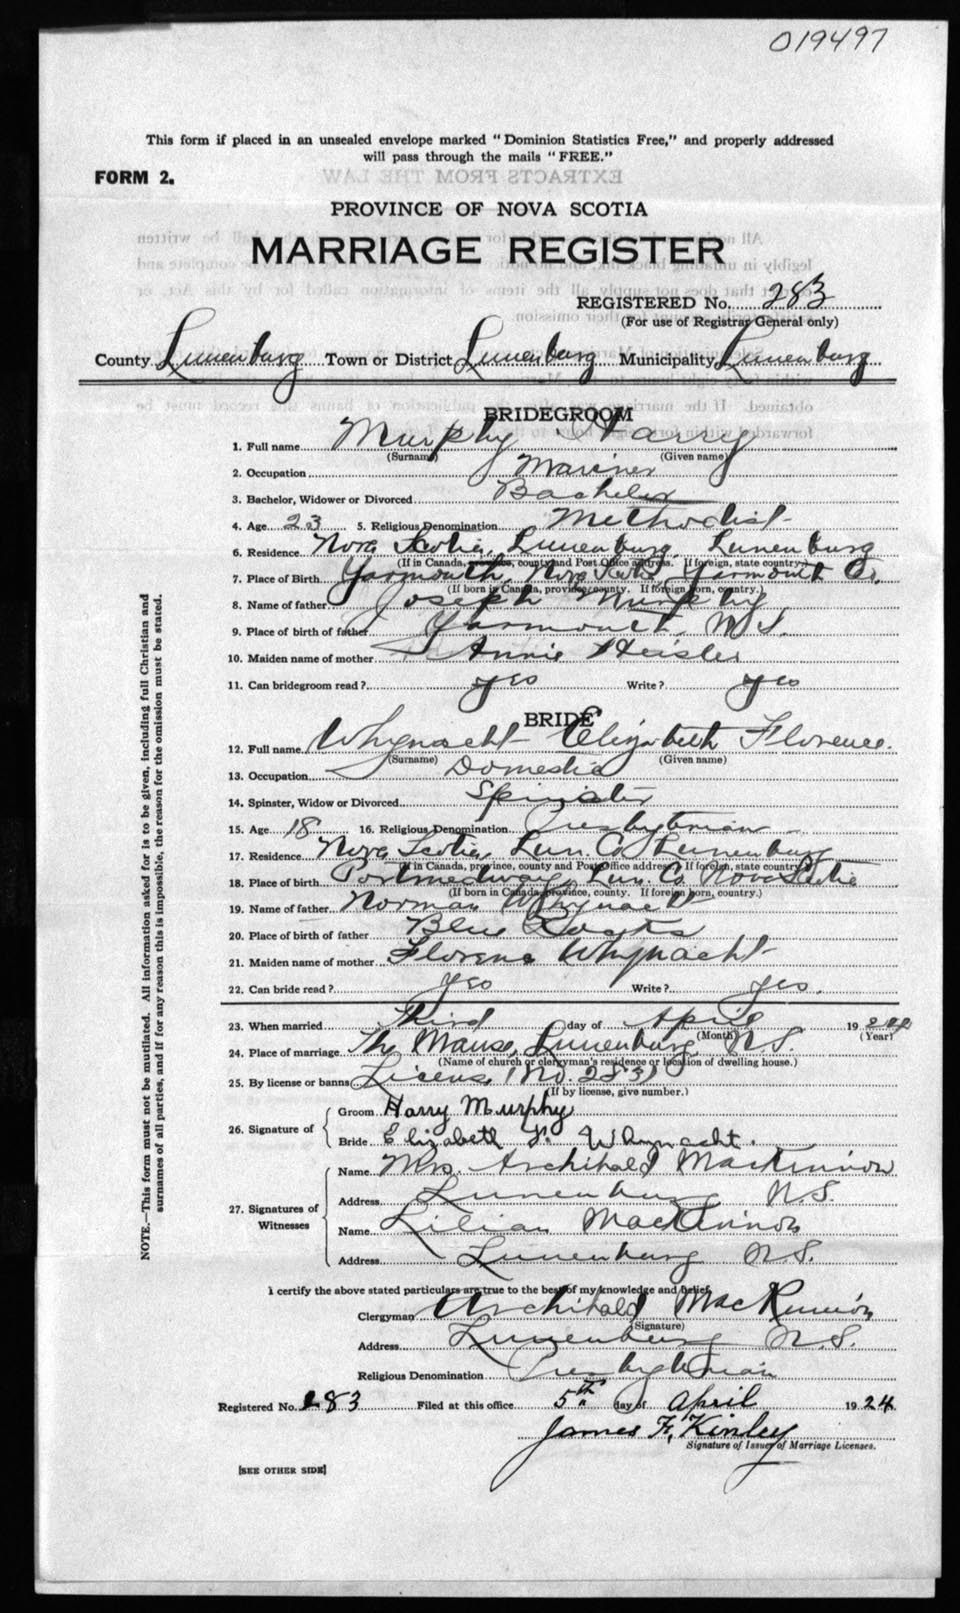 019497
This form if placed in an unsealed envelope marked "Dominion Statistics Free," and properly addressed
will pass through the mails "FREE."
FORM 2.
PROVINCE OF NOVA SCOTIA
MARRIAGE REGISTER
REGISTERED No. 283
(For use of Registrar General only)
County Lunenburg Town or District Lunenburg Municipality Lunenburg
BRIDEGROOM
1. Full name Murphy Harry
(Surname) (Given name)
2. Occupation Mariner
3. Bachelor, Widower or Divorced Bachelor
4. Age 23 5. Religious Denomination Methodist
6. Residence Nova Scotia, Lunenburg, Lunenburg
(If in Canada, province, county and Post Office address. If foreign, state country.)
7. Place of Birth Yarmouth, Nova Scotia Yarmouth Co.
(If born in Canada, province, county. If foreign born, country.)
8. Name of father Joseph Murphy
9. Place of birth of father Yarmouth, N.S.
10. Maiden name of mother Annie Heisler
11. Can bridegroom read? yes Write? yes
BRIDE
12. Full name Whynacht Elizabeth Florence
(Surname) (Given name)
13. Occupation Domestic
14. Spinster, Widow or Divorced Spinster
15. Age 18 16. Religious Denomination Presbyterian
17. Residence Nova Scotia, Lun. Co. Lunenburg
(If in Canada, province, county and Post Office address. If foreign, state country.)
18. Place of birth Portmedway, Lun. Co. Nova Scotia
(If born in Canada, province, county. If foreign born, country.)
19. Name of father Norman Whynacht
20. Place of birth of father Blue Rocks
21. Maiden name of mother Florence Whynacht
22. Can bride read? yes Write? yes.
23. When married Third day of April 1924
(Month) (Year)
24. Place of marriage The Manse, Lunenburg N.S.
(Name of church or clergyman's residence or location of dwelling house.)
25. By license or banns License (No. 283)
(If by license, give number.)
26. Signature of
Groom Harry Murphy
Bride Elizabeth F. Whynacht.
27. Signatures of Witnesses
Name Mrs. Archibald MacKinnon
Address Lunenburg N.S.
Name Lilian MacKinnon
Address Lunenburg N.S.
I certify the above stated particulars are true to the best of my knowledge and belief,
Clergyman Archibald MacKinnon
(Signature)
Address Lunenburg N.S.
Religious Denomination Presbyterian
Registered No. 283 Filed at this office 5th day of April 1924
James F. Kinley
Signature of Issuer of Marriage Licenses.
[SEE OTHER SIDE]
NOTE.—This form must not be mutilated. All information asked for is to be given, including full Christian and
surnames of all parties, and if for any reason this is impossible, the reason for the omission must be stated.